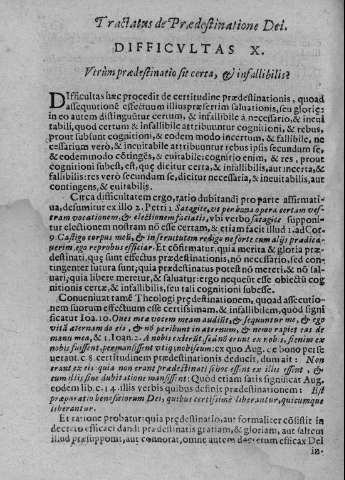 Tractatus de Prædestinatione Dei.
DIFFICVLTAS X.
Vtrùm prædestinatio sit certa, & infallibilis?
DIfficultas hæc procedit de certitudine prædestinationis, quoad
assequutionē effectuum illius præsertim saluationis, seu glorię:
in eo autem distinguūtur certum, & infallibile à necessario, & ineui
tabili, quod certum & infallibile attribuuntur cognitioni, & rebus,
prout subsunt cognitioni, & eodem modo incertum, & fallibile, ne
cessarium verò, & ineuitabile attribuuntur rebus ipsis secundum se,
& eodem modo cōtingēs, & euitabile: cognitio enim, & res, prout
cognitioni subest, est, quæ dicitur certa, & infallibilis, aut incerta, &
fallibilis: res verò secundum se, dicitur necessaria, & ineuitabilis, aut
contingens, & euitabilis.
Circa difficultatem ergo, ratio dubitandi pro parte affirmati-
ua, desumitur ex illo 2. Petri 1. Satagite, vt per bona opera certam ves-
tram vocationem, & electionem faciatis, vbi verbo satagite supponi
tur electionem nostram nō esse certam, & etiam facit illud 1. ad Cor.
9. Castigo corpus meū, & in seruitutem redigo ne forte cum alijs prædica-
uerim, ego reprobus efficiar. Et cōfirmatur, quia merita & gloria præ-
destinati, quę sunt effectus prædestinationis, nō necessario, sed con-
tingenter futura sunt; quia prædestinatus potest nō mereri, & nō sal-
uari, quia libere meretur, & saluatur: ergo nequeūt esse obiectū cog
nitionis certæ, & infallibilis, seu tali cognitioni subesse.
Conueniunt tamē Theologi prędestinationem, quoad assecutio-
nem suorum effectuum esse certissimam, & infallibilem, quod signi
ficatur Ioā. 10. Oues meæ vocem meam audiūt, & sequuntur me, & ego
vitā æternam do eis, & nō peribunt in æternum, & nemo rapiet eas de
manu mea, & 1. Ioan. 2. A nobis exierūt, sed nō erant ex nobis, si enim ex
nobis fuissent, permansissent vtiq; nobiscum: ex quo Aug. de bono perse
uerāt. c. 8. certitudinem prædestinationis deducit, dum ait: Non
erant ex eis quia non erant prædestinati si hoc essent ex illis essent, &
cum illis sine dubitatione mansissent: Quod etiam satis significat Aug.
eodem lib. c. 14. illis verbis quibus definit prædestinationem: Est
præparatio beneficiorum Dei, quibus certissimè liberantur, quicumque
liberantur.
Et ratione probatur: quia prędestinatio, aut formaliter cōsistit in
decreto efficaci dandi prædestinatis gratiam, & gloriam, aut saltem
illud præsupponit, aut connotat, omne autem decretum efficax Dei
in-